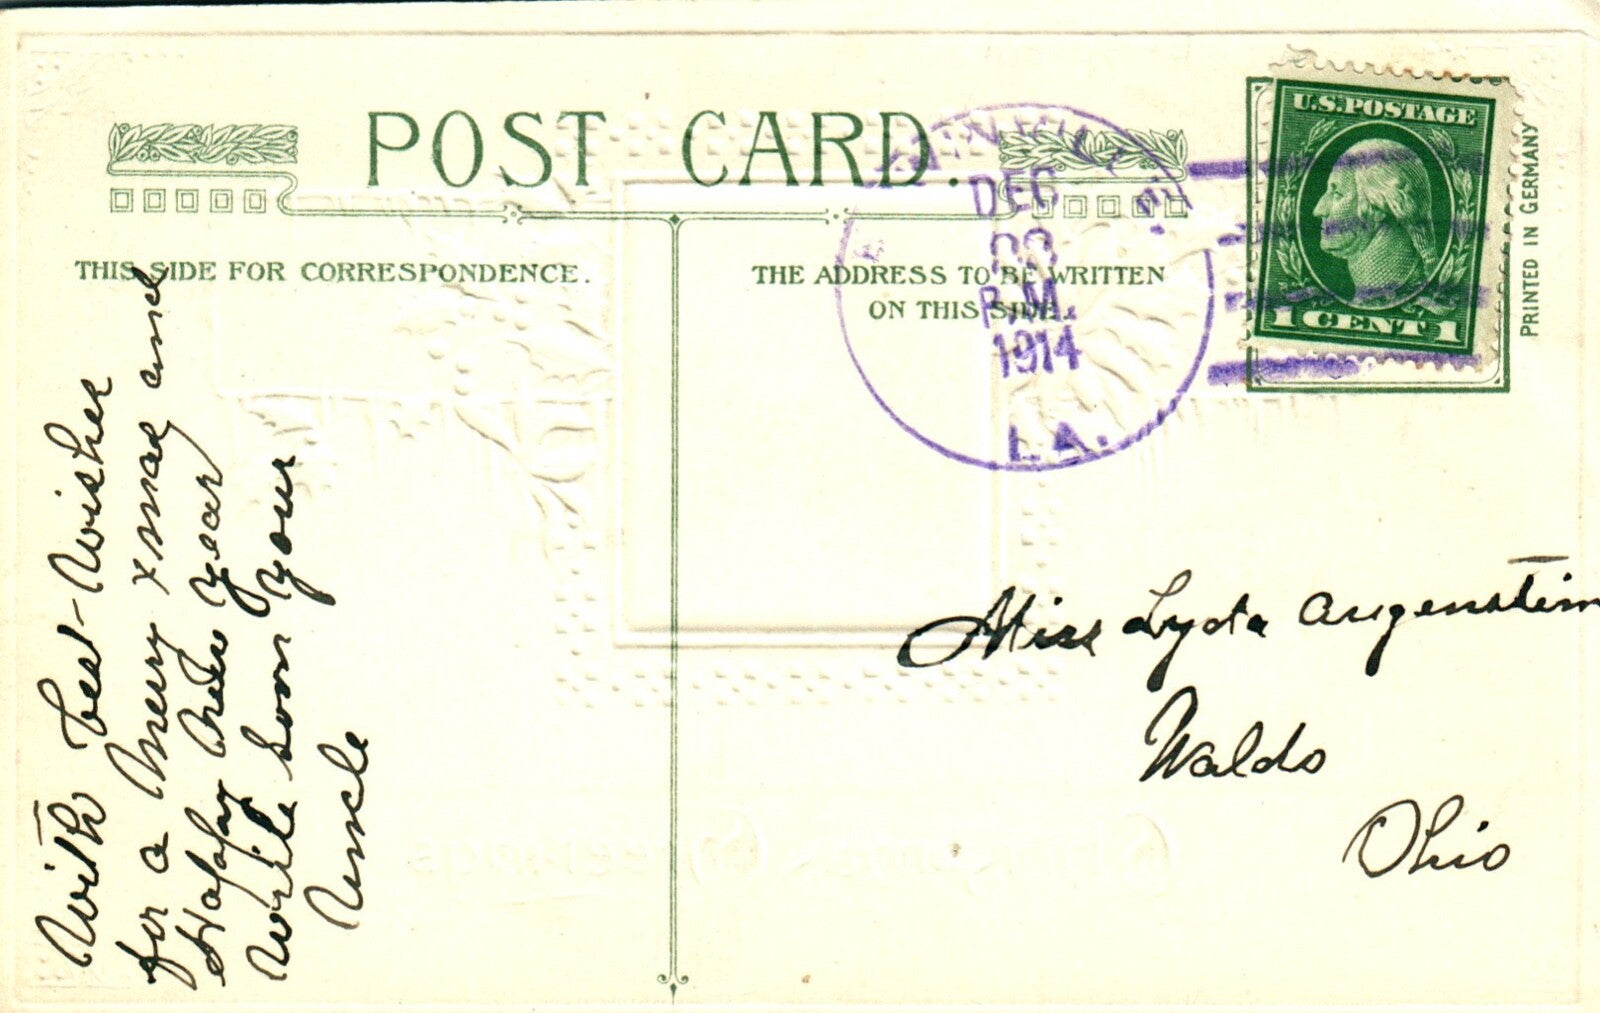 POST CARD.
THIS SIDE FOR CORRESPONDENCE.
THE ADDRESS TO BE WRITTEN
ON THIS SIDE.
U.S. POSTAGE
1 CENT 1
PRINTED IN GERMANY
DEC
P.M.
1914
LA.
With best-Wishes
for a Merry Xmas and
Happy New Year
Write soon your
Uncle
Miss Lyda Augenstein
Waldo
Ohio